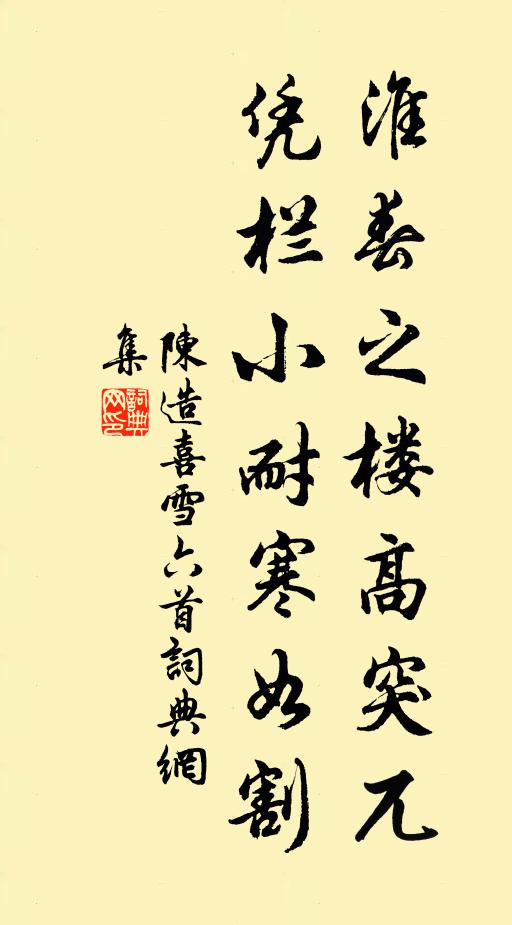 淮春之楼高突兀
凭栏小耐寒如割
陳造喜雪六首詞典網
集
詞典
网印